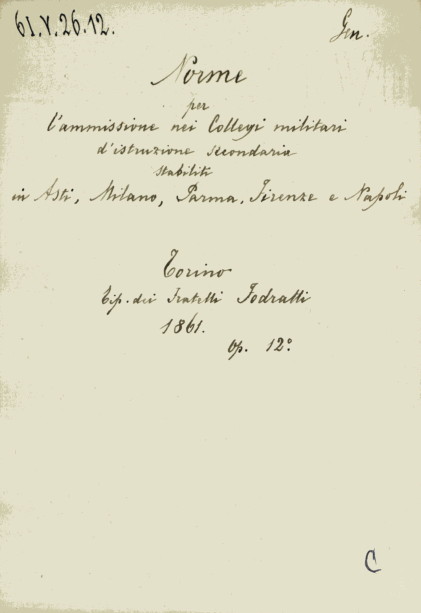 61.V.26.12.
Gen.
Norme
per
l'ammissione nei Collegi militari
d'istruzione secondaria
stabiliti
in Asti, Milano, Parma, Firenze e Napoli
Torino
Tip. dei Fratelli Fodratti
1861.
Op. 12º
C